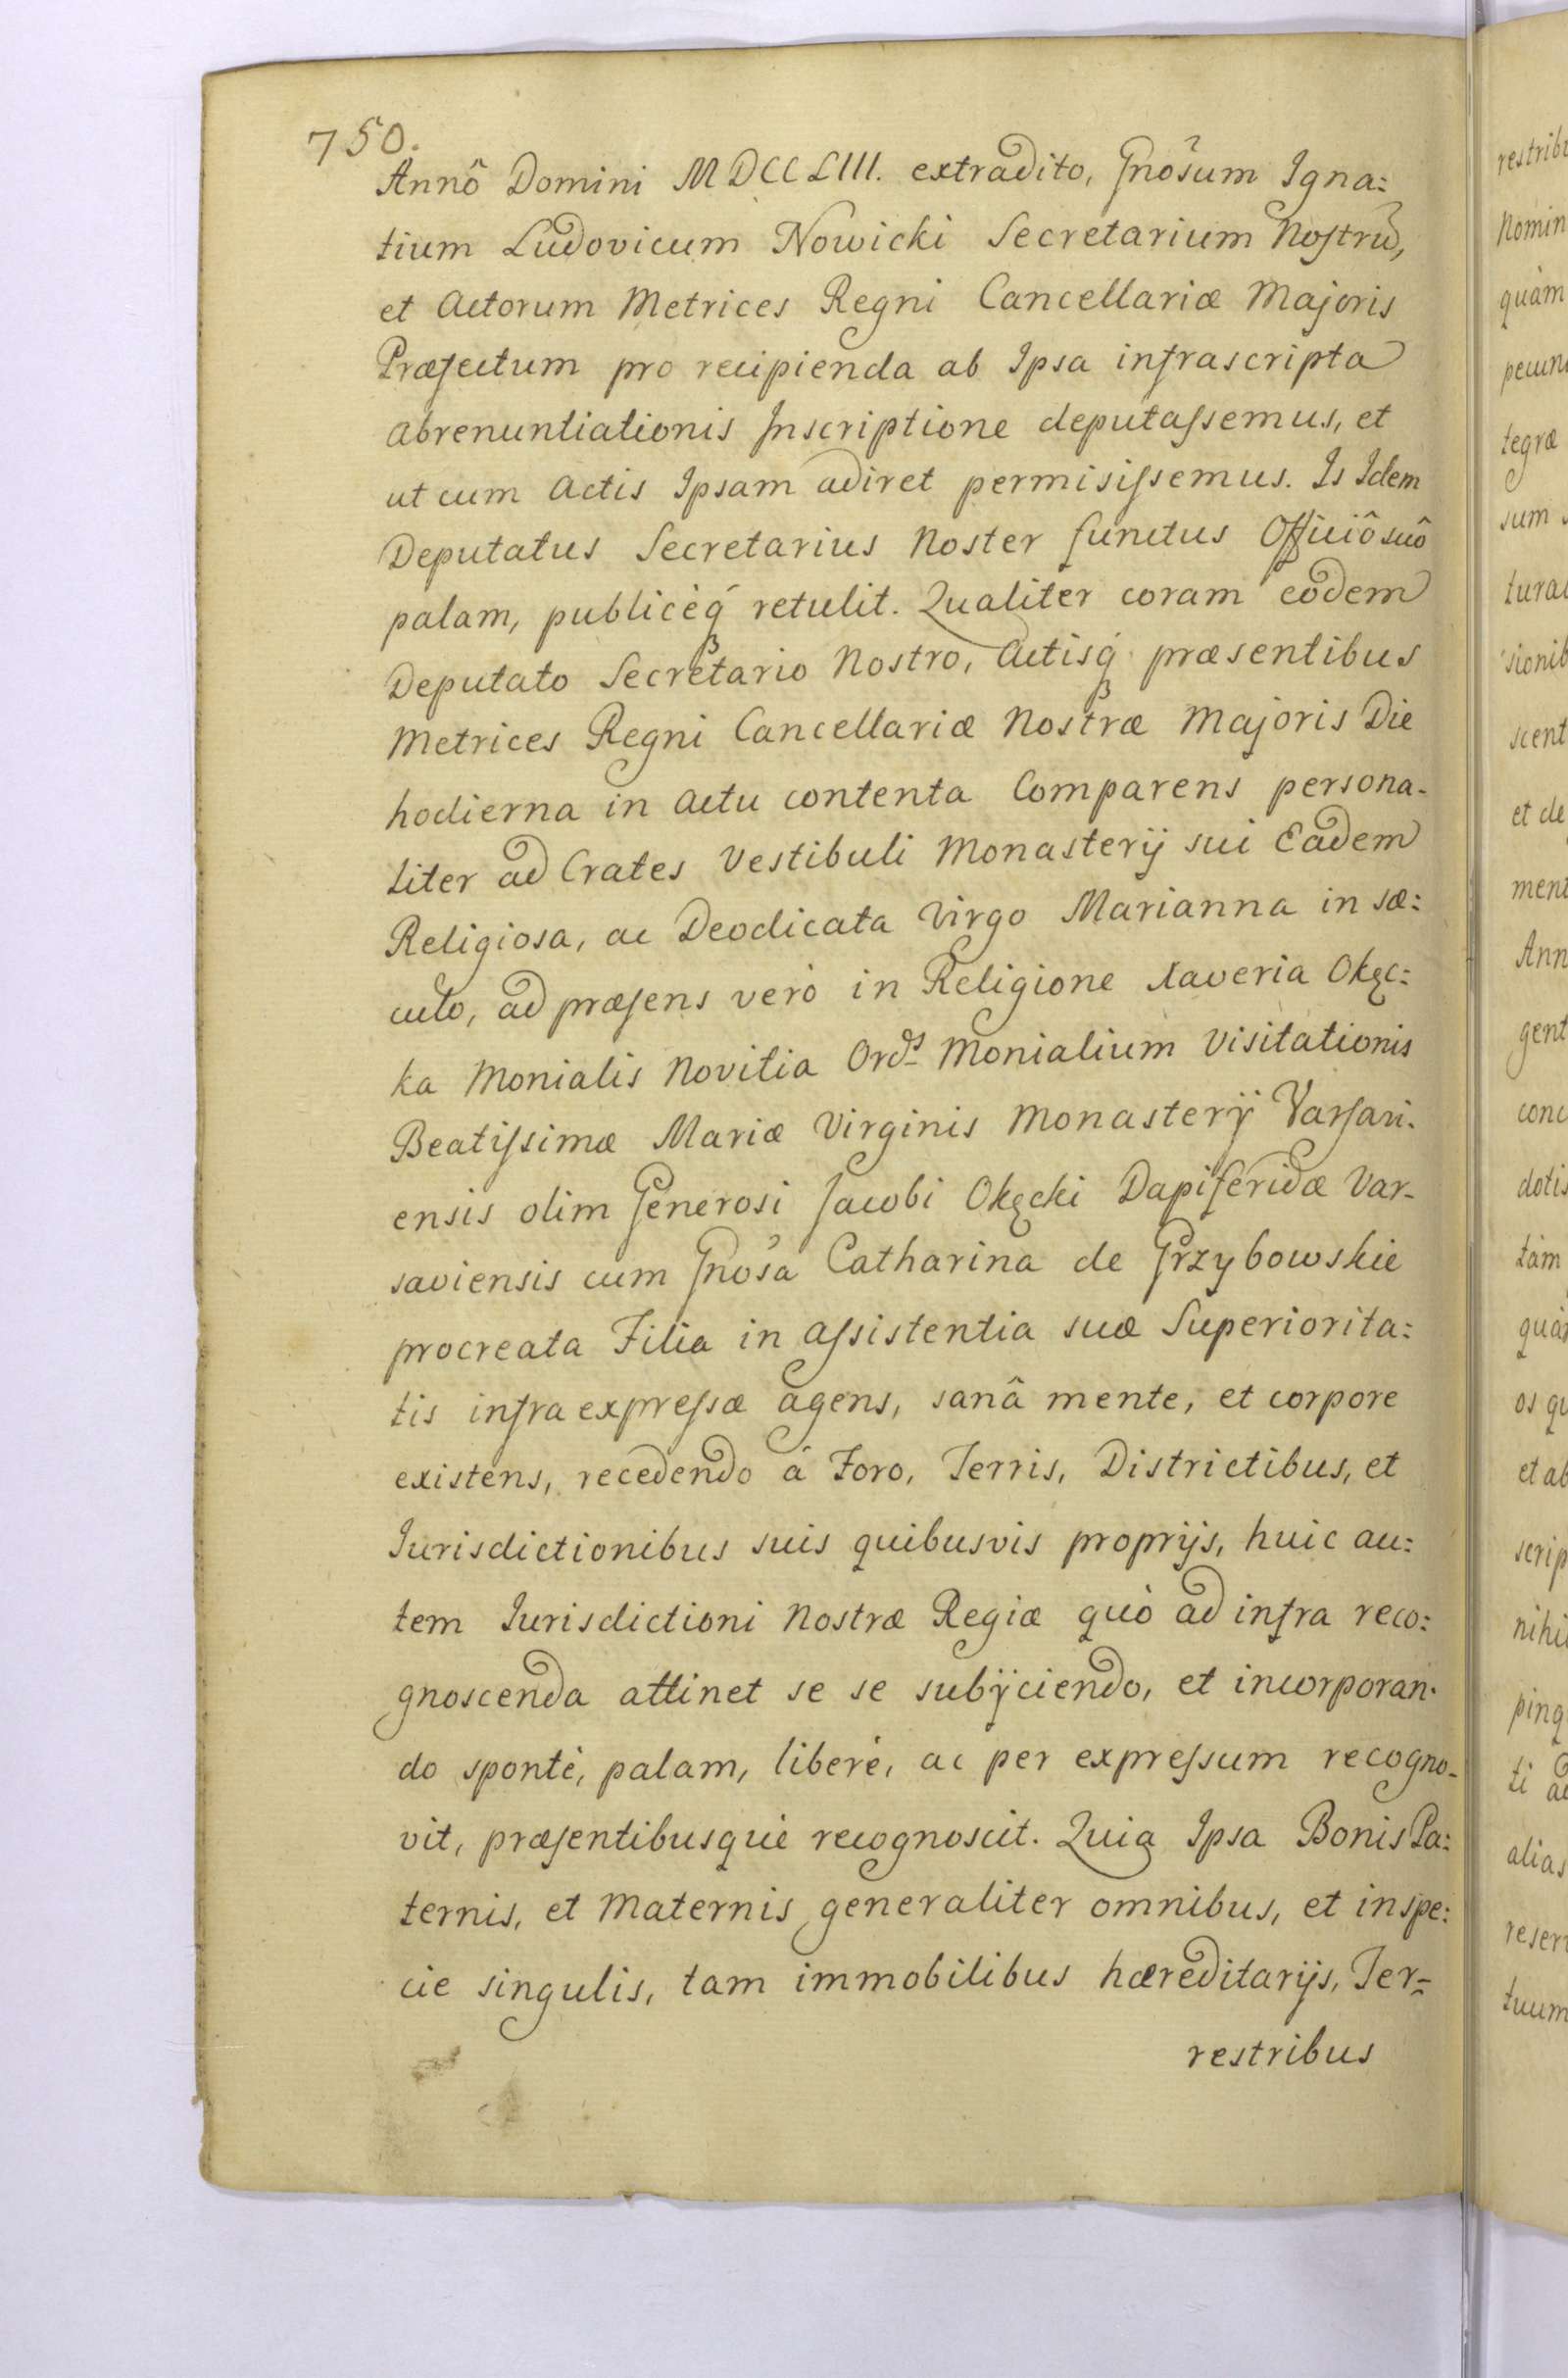 750.
Annô Domini MDCCLIII. extradito, Gnôsum Igna:
tium Ludovicum Nowicki Secretarium Nostrũ,
et Actorum Metrices Regni Cancellariæ Majoris
Præfectum pro recipienda ab Ipsa infrascripta
abrenuntiationis Inscriptione deputaſsemus, et
ut cum Actis Ipsam adiret permisiſsemus. Is Idem
Deputatus Secretarius Noster functus Officiô suô
palam, publicèq́ retulit. Qualiter coram eodem
Deputato Secretario Nostro, Actisq́ præsentibus
Metrices Regni Cancellariæ Nostræ Majoris Die
hodierna in Actu contenta Comparens persona-
liter ad Crates Vestibuli Monasterÿ sui Eadem
Religiosa, ac Deodicata Virgo Marianna in sæ:
culo, ad præſens verò in Religione Xaveria Okęc:
ka Monialis Novitia Ordˢ Monialium Visitationis
Beatiſsimæ Mariæ Virginis Monasterÿ Varſavi-
ensis olim Generosi Jacobi Okęcki Dapiferidæ Var-
saviensis cum Gnosa Catharina de Grzybowskie
procreata Filia in aſsistentia suæ Superiorita:
tis infra expreſsæ agens, sanâ mente, et corpore
existens, recedendo à Foro, Terris, Districtibus, et
Iurisdictionibus suis quibusvis proprÿs, huic au:
tem Iurisdictioni Nostræ Regiæ quò ad infra reco:
gnoscenda attinet se se subÿciendo, et incorporan-
do spontè, palam, liberè, ac per expreſsum recogno-
vit, præſentibusquè recognoscit. Quia Ipsa Bonis Pa:
ternis, et Maternis generaliter omnibus, et in spe:
cie singulis, tam immobilibus hæreditarÿs, Ter=
restribus